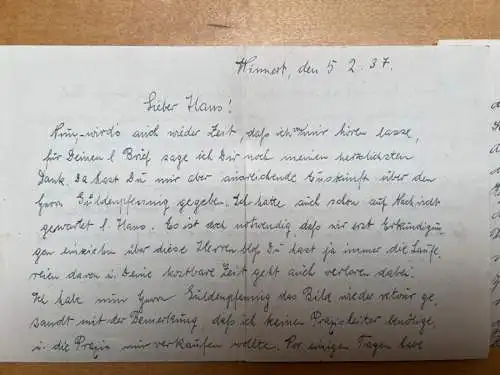 Winnert, den 5 2. 37.
Lieber Hans!
Nun wird's auch wieder Zeit daß ich von mir hören lasse,
für Deinen l Brief sage ich Dir noch meinen herzlichsten
Dank. Da hast Du mir aber ausreichende Auskunft über den
Herrn Güldenpfennig gegeben. Ich hatte auch schon auf Nachricht
gewartet l. Hans. Es ist doch notwendig daß wir erst Erkündigun
gen einziehen über diese Herren bloß Du hast ja immer die Laufe,
reien davon u. Deine kostbare Zeit geht auch verloren dabei.
Ich habe nun Herrn Güldenpfennig das Bild wieder retour ge,
sandt mit der Bemerkung, daß ich keinen Praxisleiter benötige,
u. die Praxis nur verkaufen wollte. Vor einigen Tagen